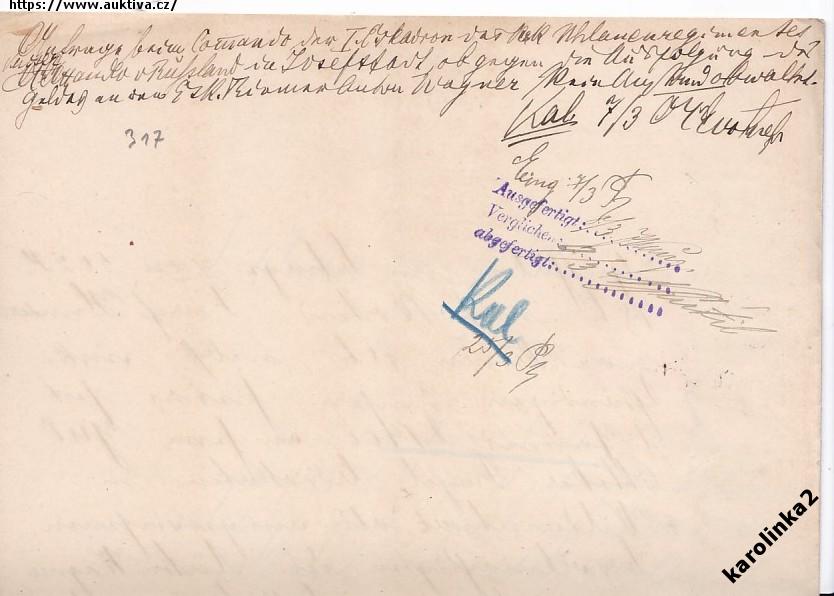 https://www.auktiva.cz/
Anfrage beim Comando der I. Eskadron des k.k. Uhlanenregimentes
Alexander v Rußland in Josefstadt, ob gegen die Ausfolgung des
Geldes an den Esk. Riemer Anton Wagner kein Anstand obwaltet.
Kal 7/3
317
Eing 7/3
Ausgefertigt:
Verglichen:
abgefertigt:
Kal
25/3
karolinka2